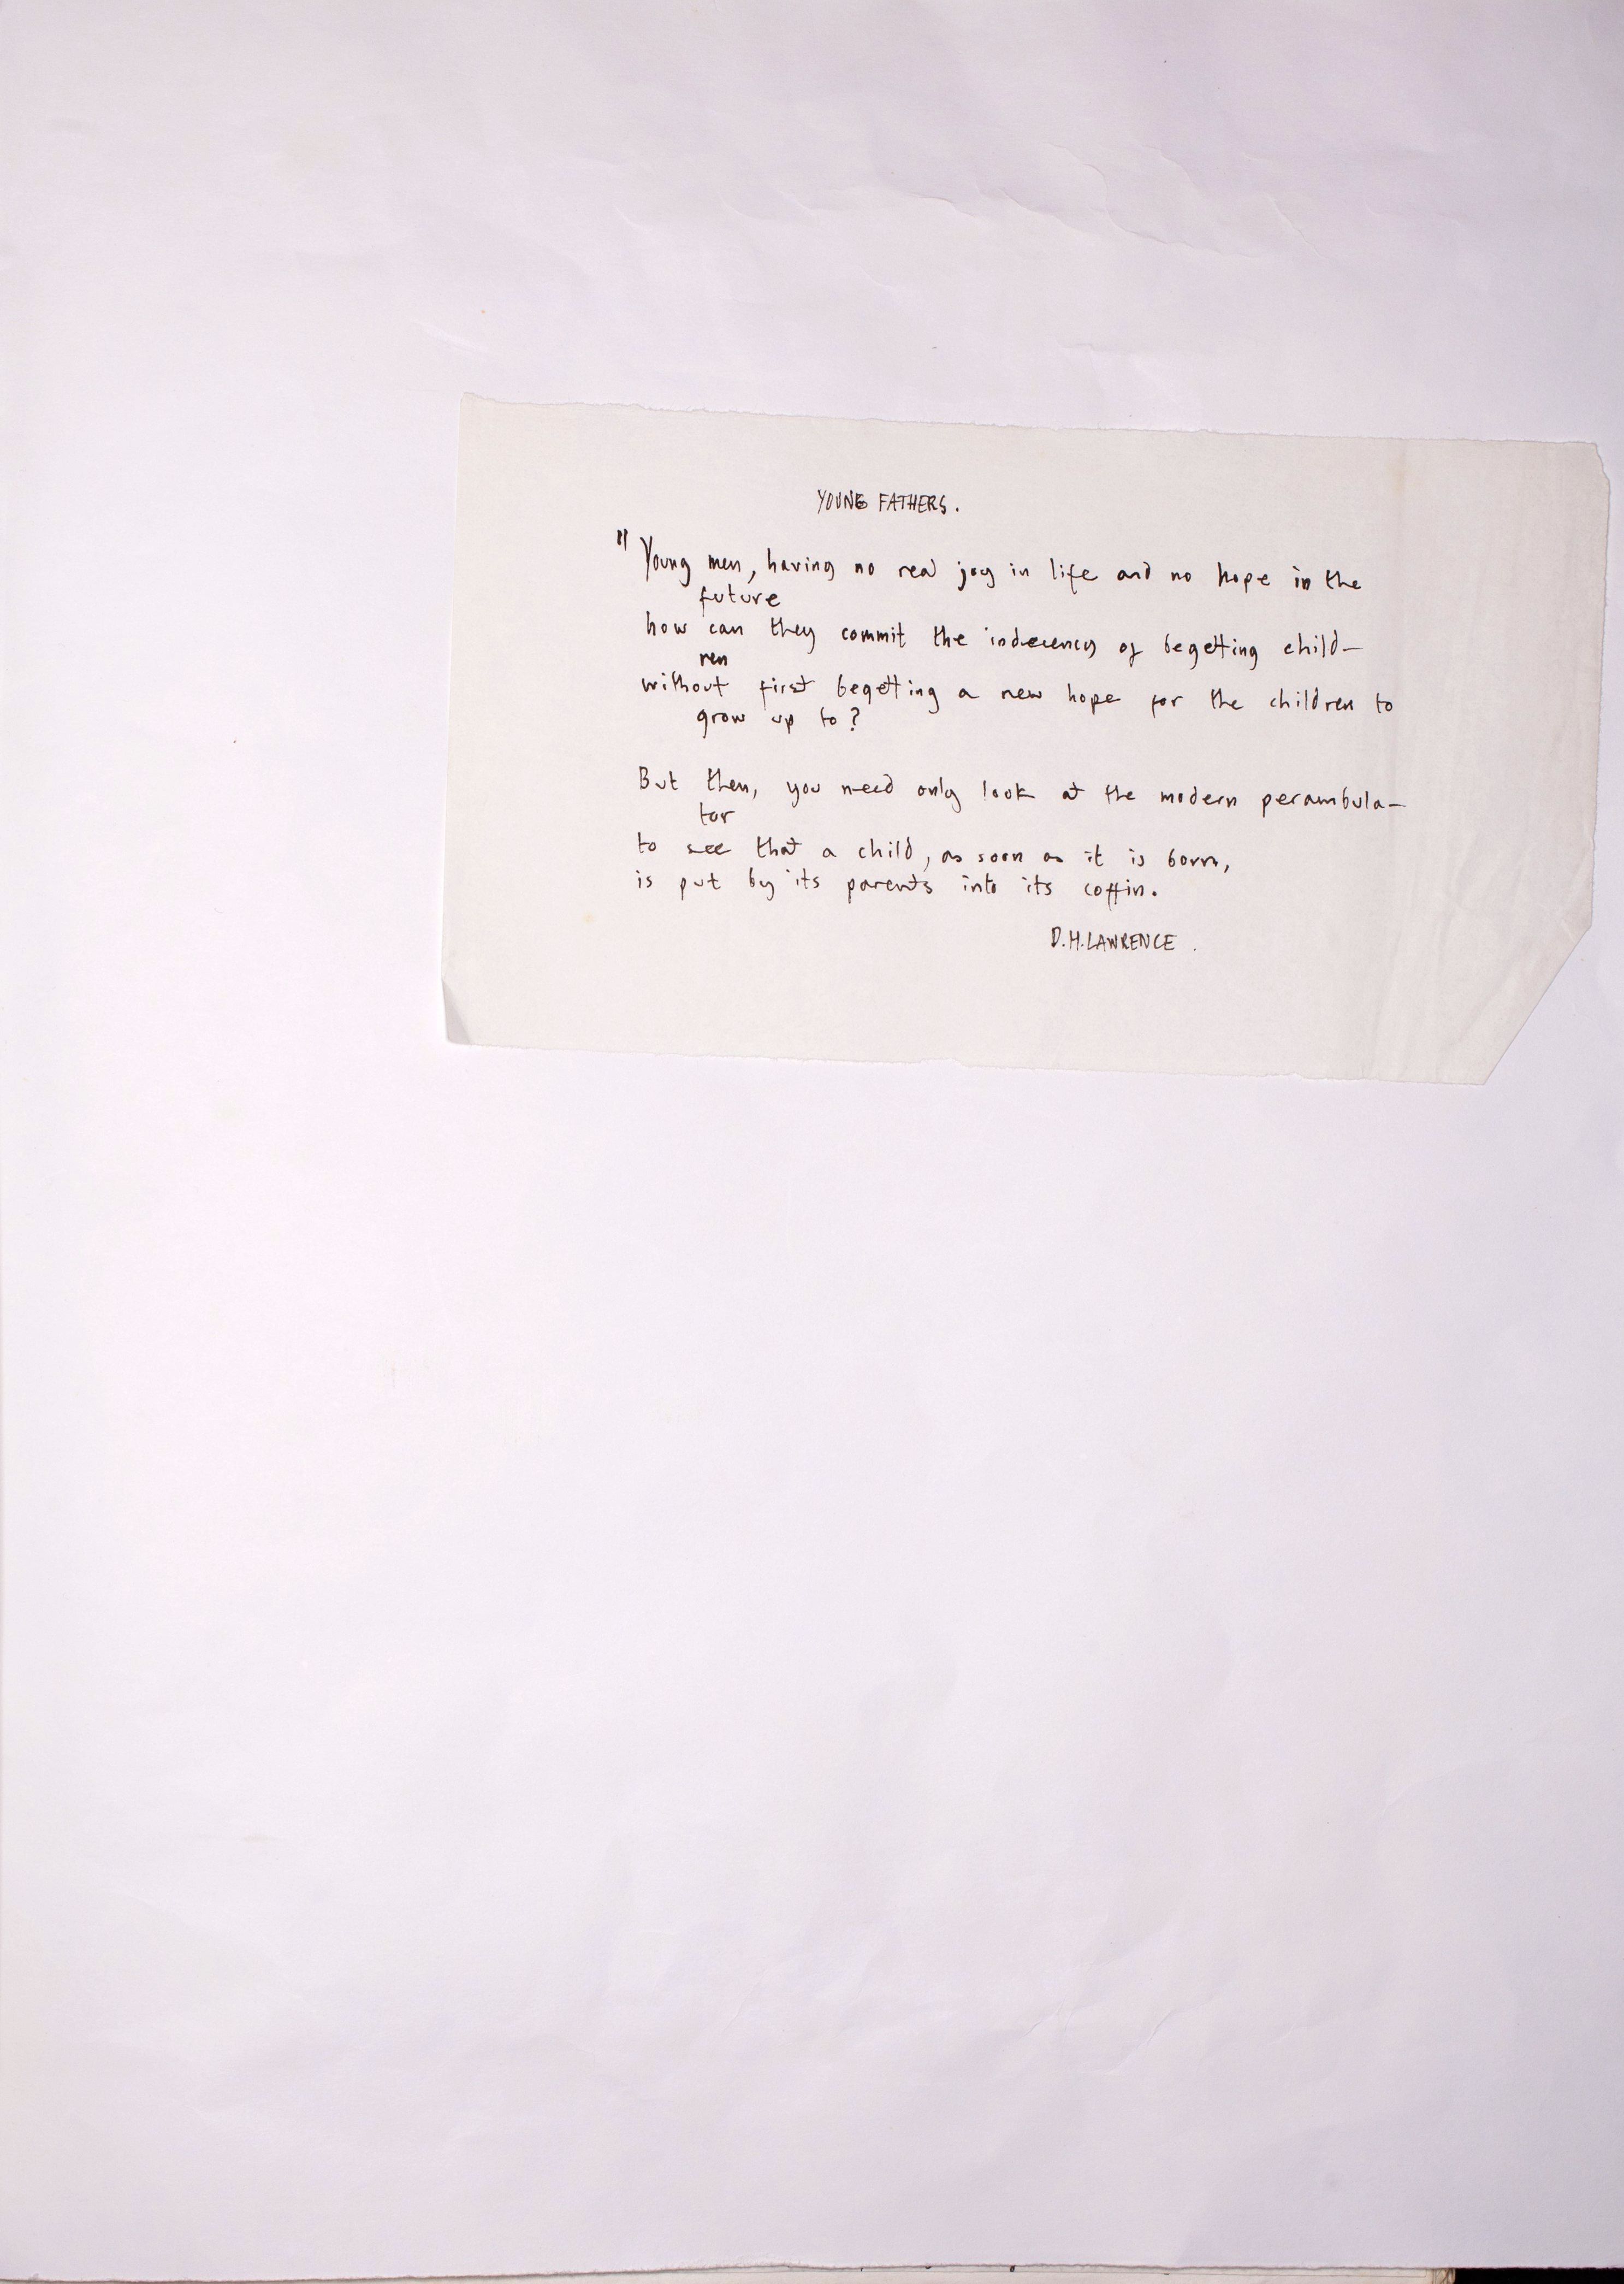 YOUNG FATHERS.
" Young men, having no real joy in life and no hope in the
future
how can they commit the indecency of begetting child-
ren
without first begetting a new hope for the children to
grow up to?
But then, you need only look at the modern perambula-
tor
to see that a child, as soon as it is born,
is put by its parents into its coffin.
D.H.LAWRENCE.